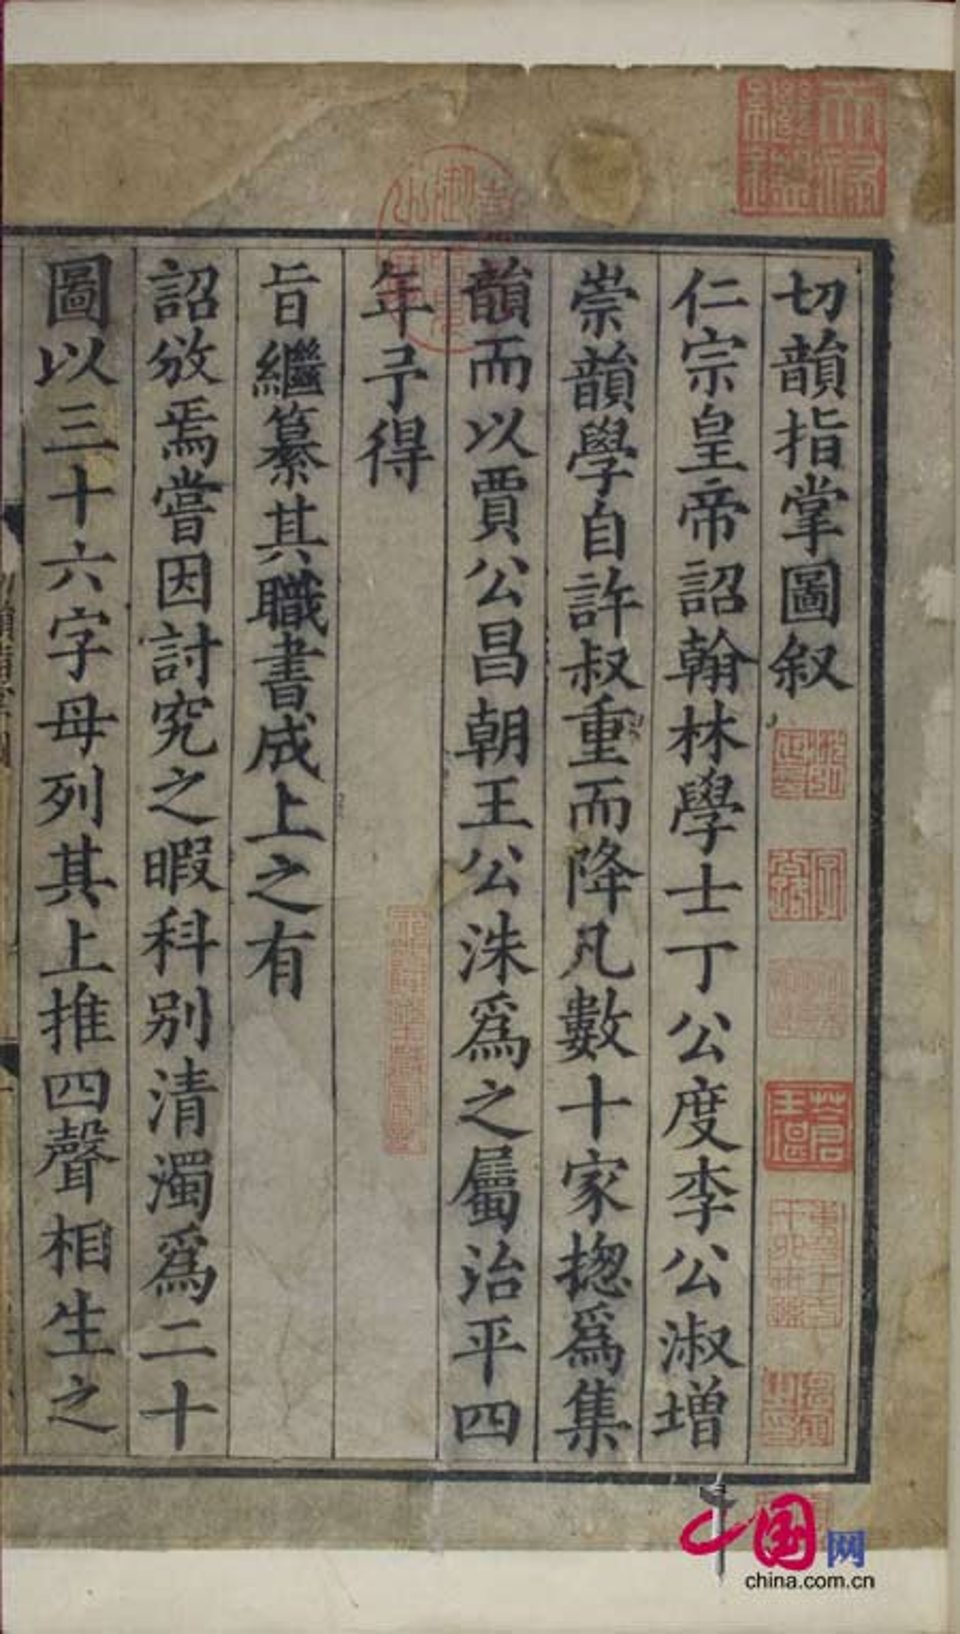 切韻指掌圖叙
仁宗皇帝詔翰林學士丁公度李公淑增
崇韻學自許叔重而降凡數十家揔爲集
韻而以賈公昌朝王公洙爲之屬治平四
年予得
旨繼纂其職書成上之有
詔攽焉嘗因討究之暇科别清濁爲二十
圖以三十六字母列其上推四聲相生之
天祿繼鑑
中国网
china.com.cn